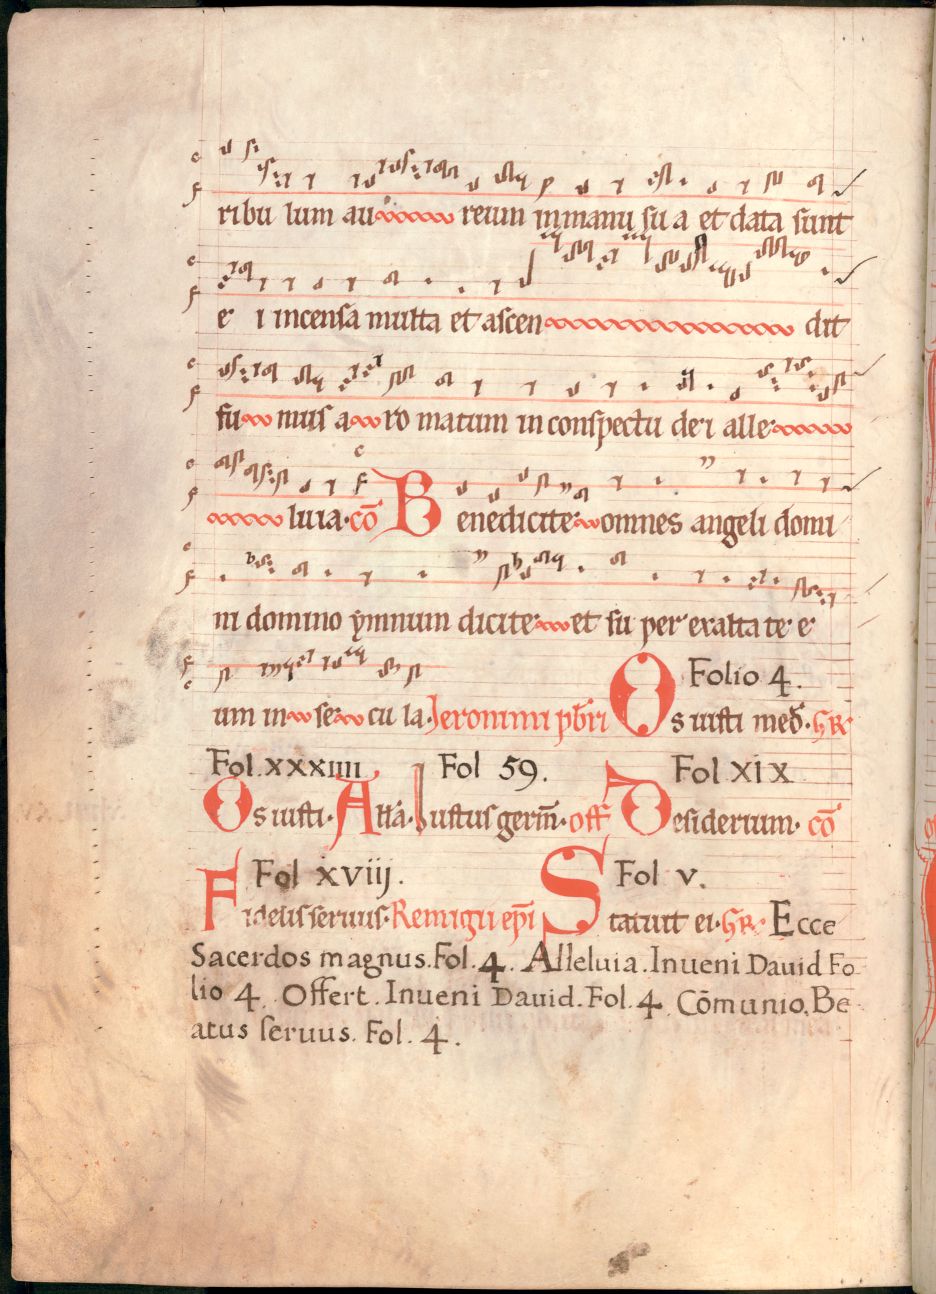 ribu lum au reum in manu su a et data sunt
e i incensa multa et ascen dit
fu mus a ro matum in conspectu de i alle
luia. cō Benedicite omnes angeli domi
ni domino ymnum dicite et su per exalta te e
Folio 4.
um in se cu la. Jeronimi pbri Os iusti med. GR
Fol. xxxiiii Fol 59. Fol XIX
Os iusti. Alla. Iustus germ̄. off Desiderium. cō
Fol xviij. Fol v.
Fidelis seruus. Remigii epi Statuit ei. GR. Ecce
Sacerdos magnus. Fol. 4. Alleluia. Inueni Dauid Fo
lio 4. Offert. Inueni Dauid. Fol. 4. Cōmunio. Be
atus seruus. Fol. 4.